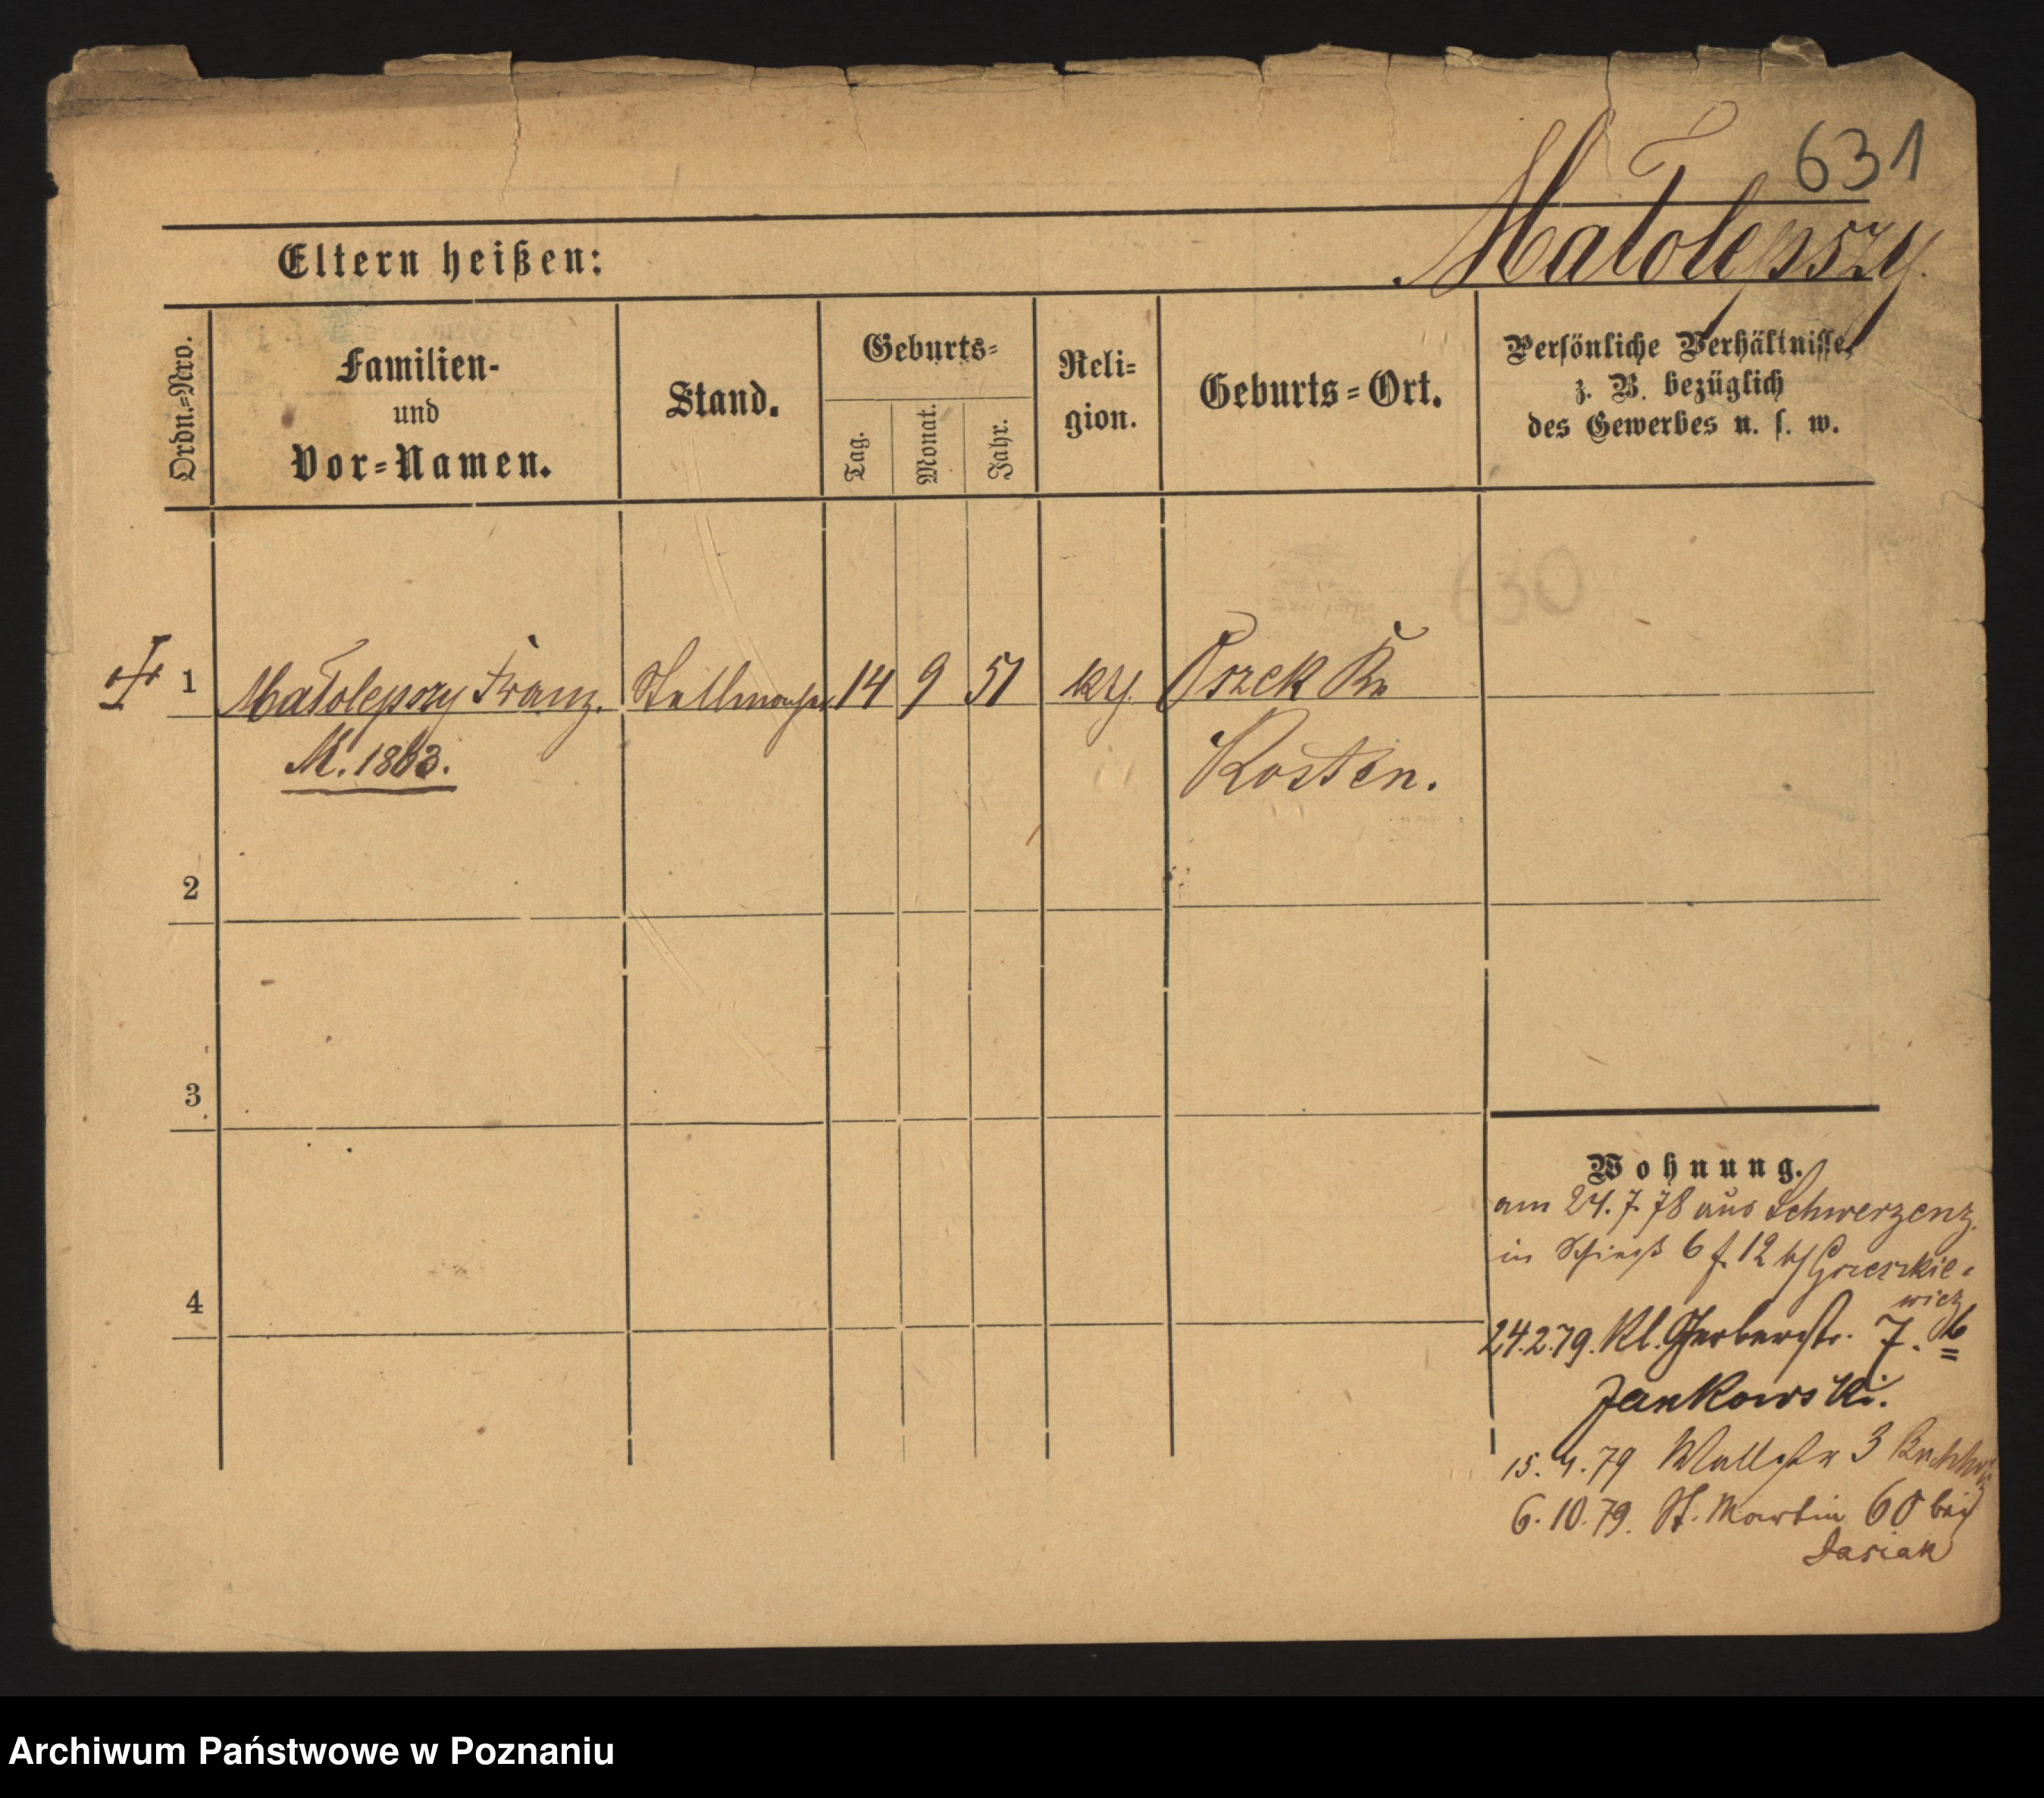 631
Małolepszy.
Eltern heißen:
Ordn.=Nro.
Familien-
und
Vor=Namen.
Stand.
Geburts=
Tag.
Monat.
Jahr.
Reli=
gion.
Geburts=Ort.
Persönliche Verhältnisse,
z. B. bezüglich
des Gewerbes u. s. w.
630
1 Małolepszy Franz. Stellmacher 14 9 51 Oszek Kr
M. 1863.
Kosten.
2
3
4
Wohnung.
am 24. 7. 78 aus Schwerzenz.
in 6 f. 12 b/ Gorzeszkie=
wicz
24.2.79. Kl. Gerberstr. 7. b
Jankowski.
15. 4. 79 Wallstr 3
6. 10. 79. St. Martin 60 bei
Jasiak
Archiwum Państwowe w Poznaniu